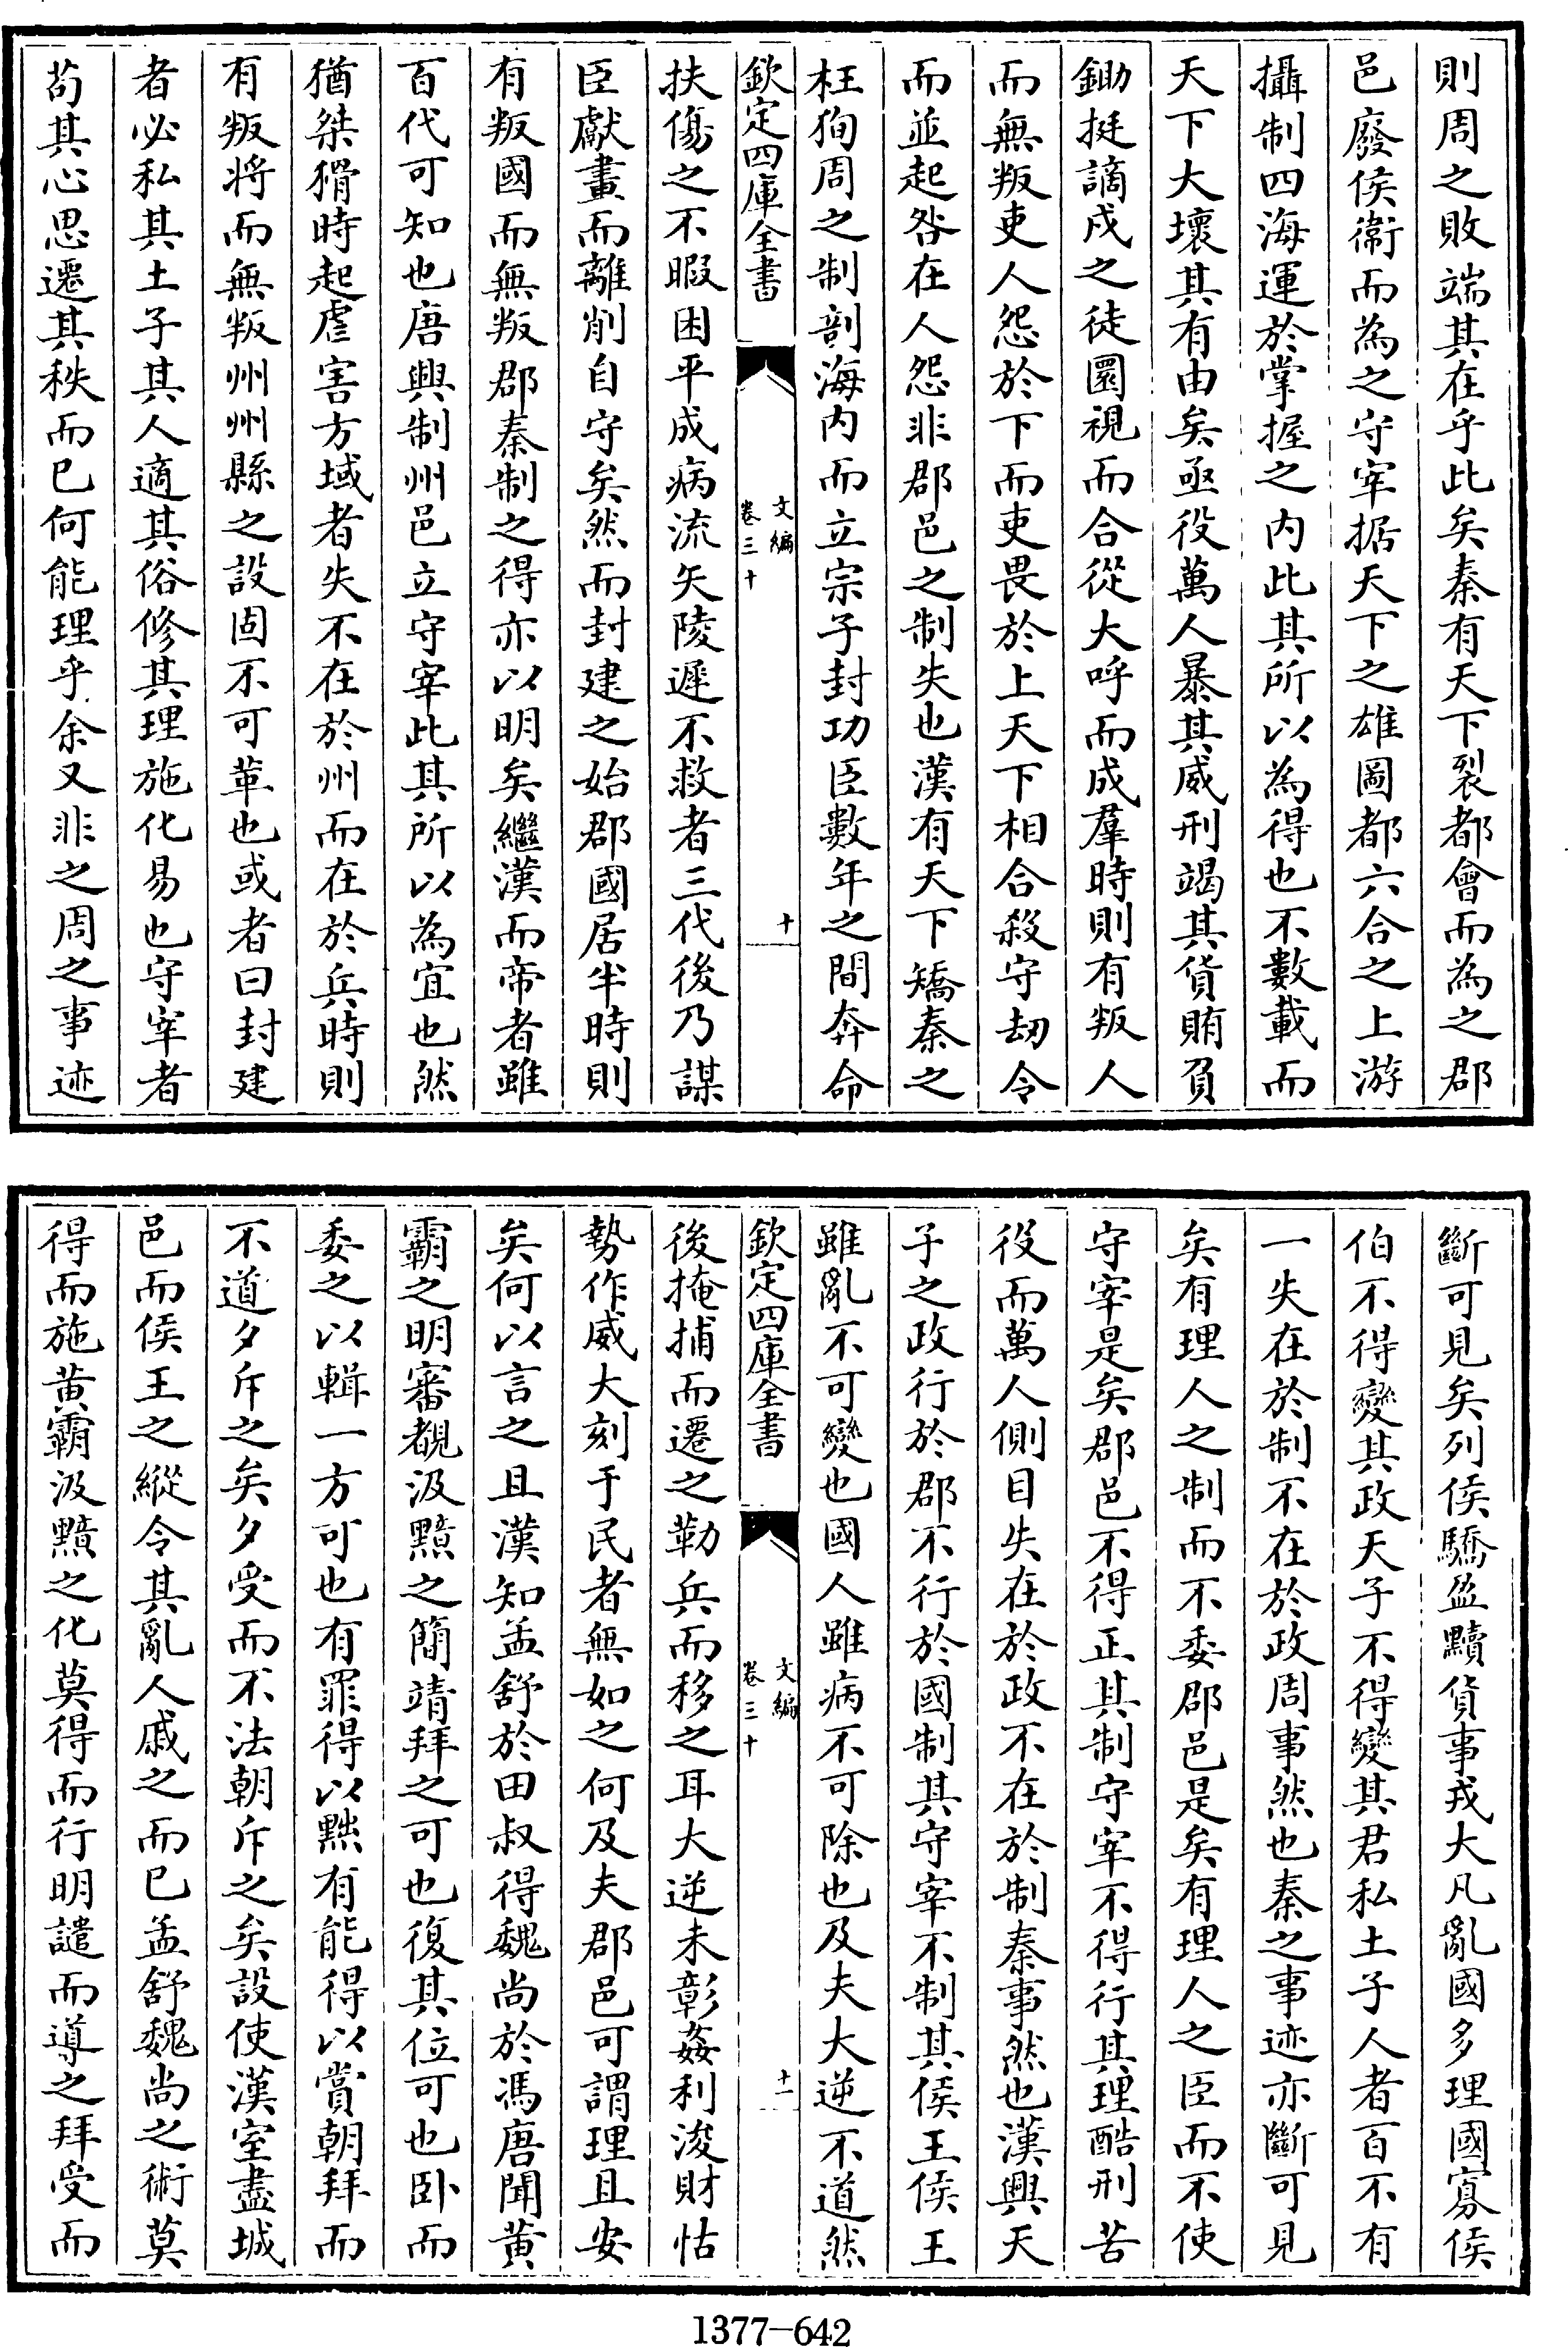 則周之敗端其在乎此矣秦有天下裂都會而為之郡
邑廢侯衛而為之守宰據天下之雄圖都六合之上游
攝制四海運於掌握之内此其所以為得也不數載而
天下大壞其有由矣亟役萬人暴其威刑竭其貨賄負
鋤挺謫戍之徒圜視而合從大呼而成羣時則有叛人
而無叛吏人怨於下而吏畏於上天下相合殺守刼令
而並起咎在人怨非郡邑之制失也漢有天下矯秦之
枉狥周之制剖海内而立宗子封功臣數年之間奔命
欽定四庫全書
文編
卷三十
十
扶傷之不暇困平成病流矢陵遲不救者三代後乃謀
臣獻畫而離削自守矣然而封建之始郡國居半時則
有叛國而無叛郡秦制之得亦以明矣繼漢而帝者雖
百代可知也唐興制州邑立守宰此其所以為宜也然
猶桀猾時起虐害方域者失不在於州而在於兵時則
有叛将而無叛州州縣之設固不可革也或者曰封建
者必私其土子其人適其俗修其理施化易也守宰者
苟其心思遷其秩而已何能理乎余又非之周之事迹
斷可見矣列侯驕盈黷貨事戎大凡亂國多理國寡侯
伯不得變其政天子不得變其君私土子人者百不有
一失在於制不在於政周事然也秦之事迹亦斷可見
矣有理人之制而不委郡邑是矣有理人之臣而不使
守宰是矣郡邑不得正其制守宰不得行其理酷刑苦
役而萬人側目失在於政不在於制秦事然也漢興天
子之政行於郡不行於國制其守宰不制其侯王侯王
雖亂不可變也國人雖病不可除也及夫大逆不道然
欽定四庫全書
文編
卷三十
十一
後掩捕而遷之勒兵而移之耳大逆未彰姦利浚財怙
勢作威大刻于民者無如之何及夫郡邑可謂理且安
矣何以言之且漢知孟舒於田叔得魏尚於馮唐聞黄
霸之明審覩汲黯之簡靖拜之可也復其位可也卧而
委之以輯一方可也有罪得以黜有能得以賞朝拜而
不道夕斥之矣夕受而不法朝斥之矣設使漢室盡城
邑而侯王之縱令其亂人戚之而已孟舒魏尚之術莫
得而施黄霸汲黯之化莫得而行明譴而導之拜受而
1377-642